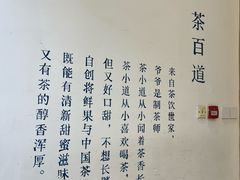 茶百道
来自茶饮世家，
爷爷是制茶师，
茶小道从小闻着茶香长
茶小道从小喜欢喝茶，
但又好口甜，不想长胖
自创将鲜果与中国茶
既能有清新甜蜜滋味
又有茶的醇香浑厚。